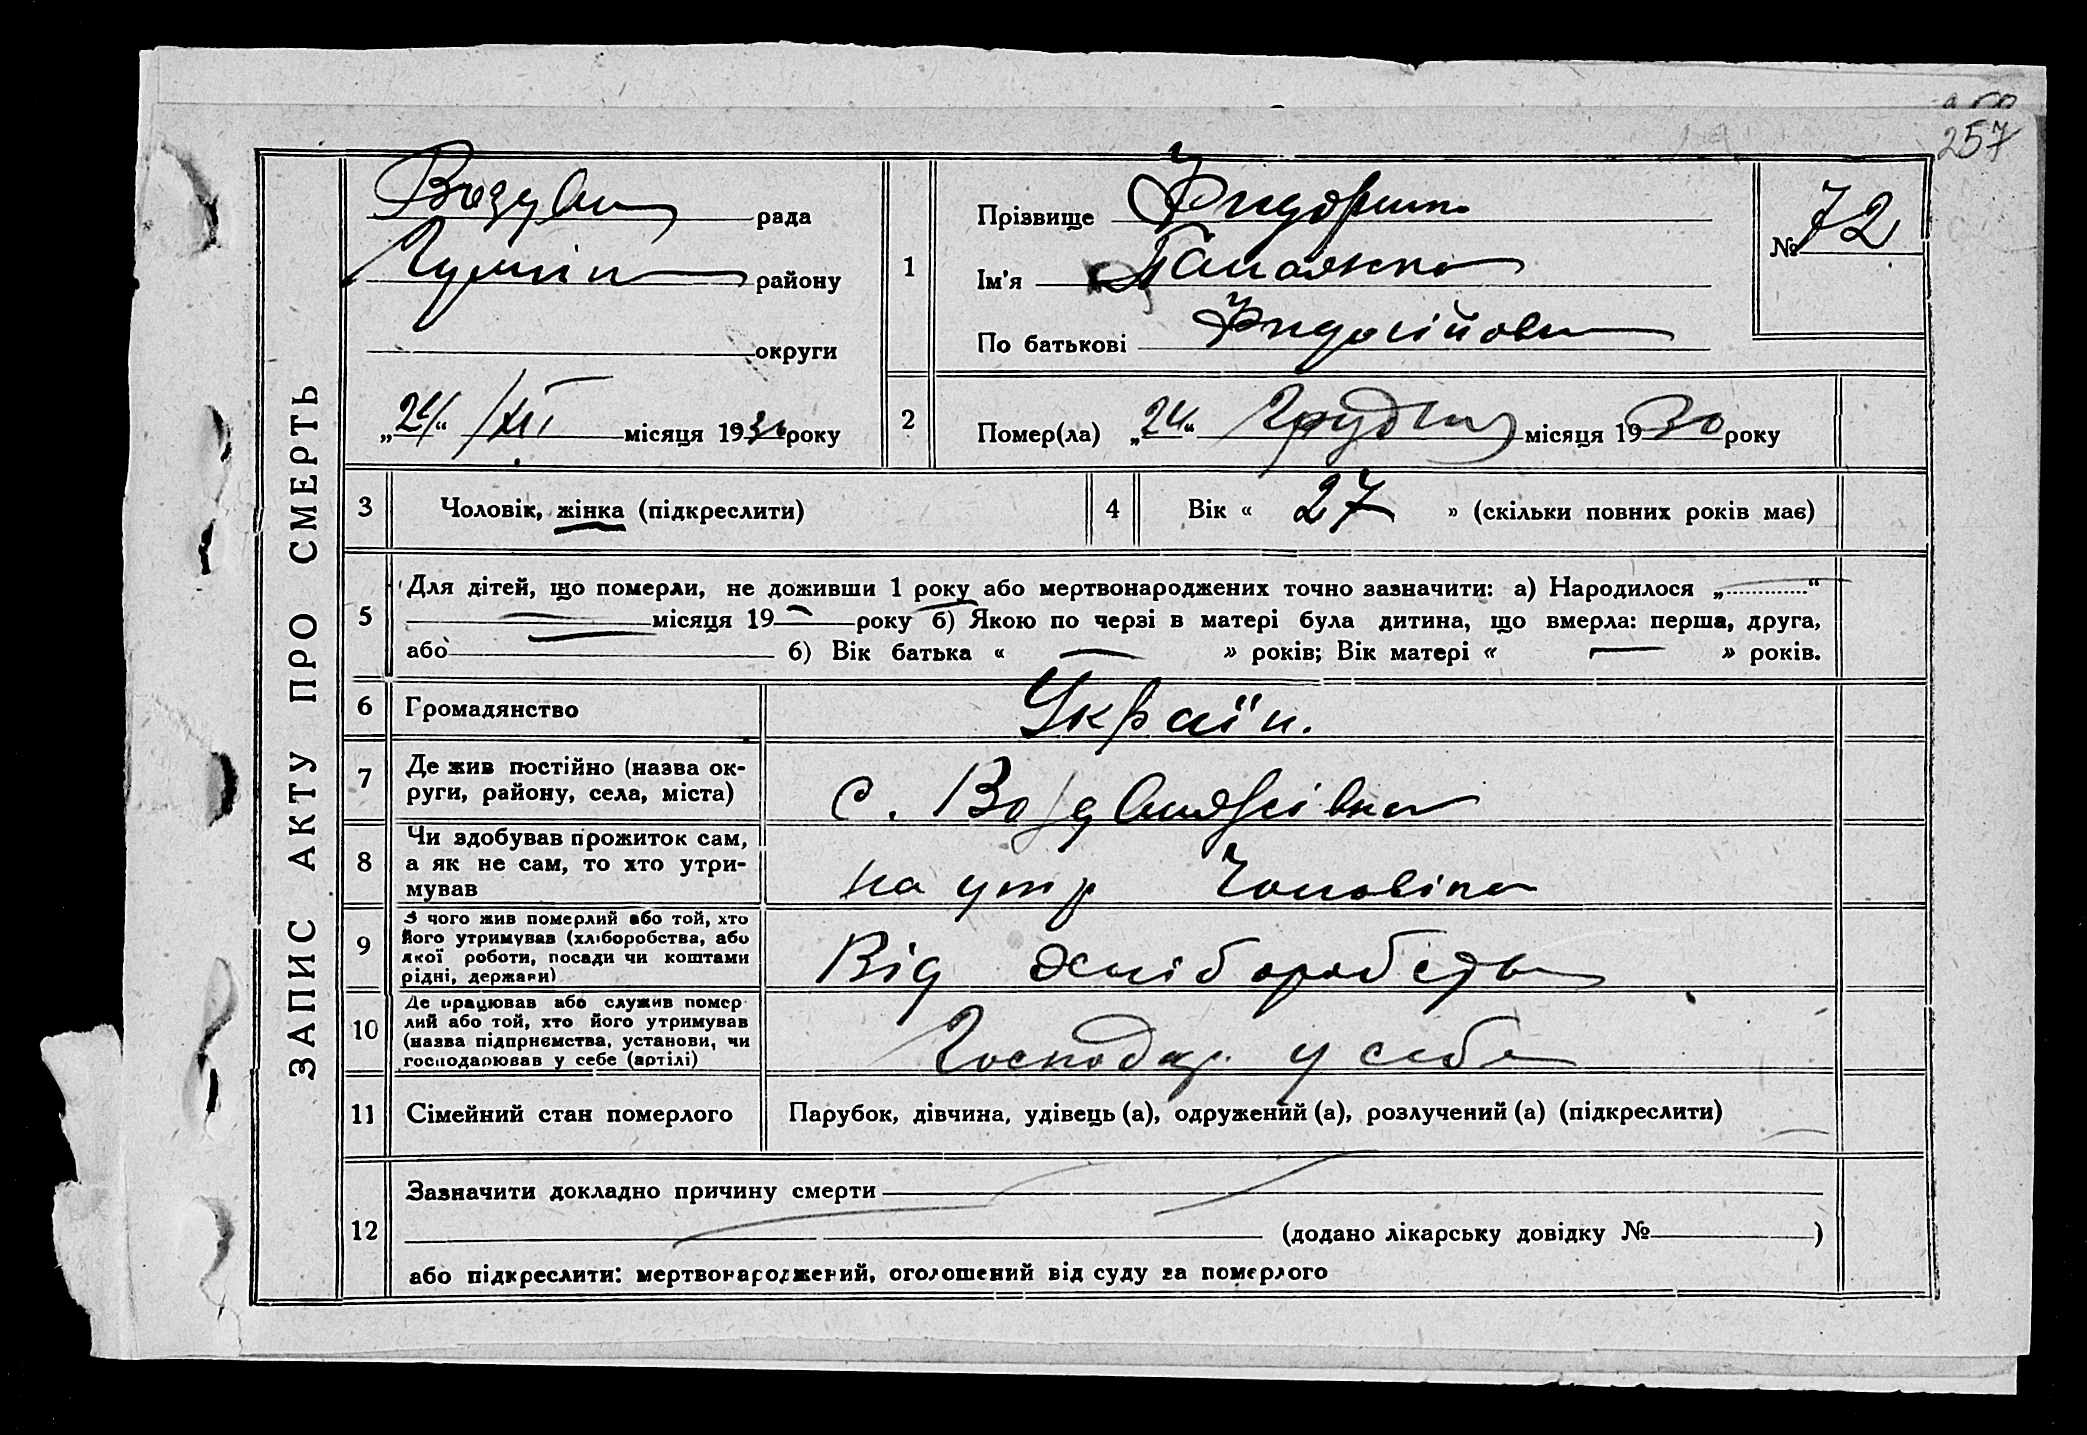 257
ЗАПИС АКТУ ПРО СМЕРТЬ
рада
району
округи
„24“ /XII місяця 1930 року
1
Прізвище
Ім'я
По батькові
№ 72
2
Помер(ла) „24“ Грудня місяця 1930 року
3 Чоловік, жінка (підкреслити)
4 Вік « 27 » (скільки повних років має)
5 Для дітей, що померли, не доживши 1 року або мертвонароджених точно зазначити: а) Народилося „ “
місяця 19 року б) Якою по черзі в матері була дитина, що вмерла: перша, друга,
або б) Вік батька « » років; Вік матері « » років.
6 Громадянство Україн.
7 Де жив постійно (назва ок-
руги, району, села, міста) с.
8 Чи здобував прожиток сам,
а як не сам, то хто утри-
мував на утр Чоловіка
9 З чого жив померлий або той, хто
його утримував (хліборобства, або
якої роботи, посади чи коштами
рідні, держави) Від хліборобства
10 Де працював або служив помер
лий або той, хто його утримував
(назва підприємства, установи, чи
господарював у себе (артілі) Господар. у себе
11 Сімейний стан померлого Парубок, дівчина, удівець (а), одружений (а), розлучений (а) (підкреслити)
12 Зазначити докладно причину смерти
(додано лікарську довідку № )
або підкреслити: мертвонароджений, оголошений від суду за померлого